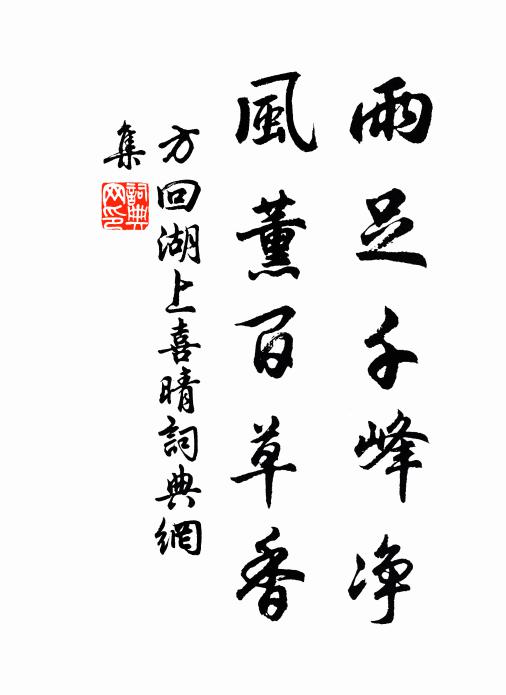 雨足千峰净
風薰百草香
方回湖上喜晴詞典網
集
詞典网印